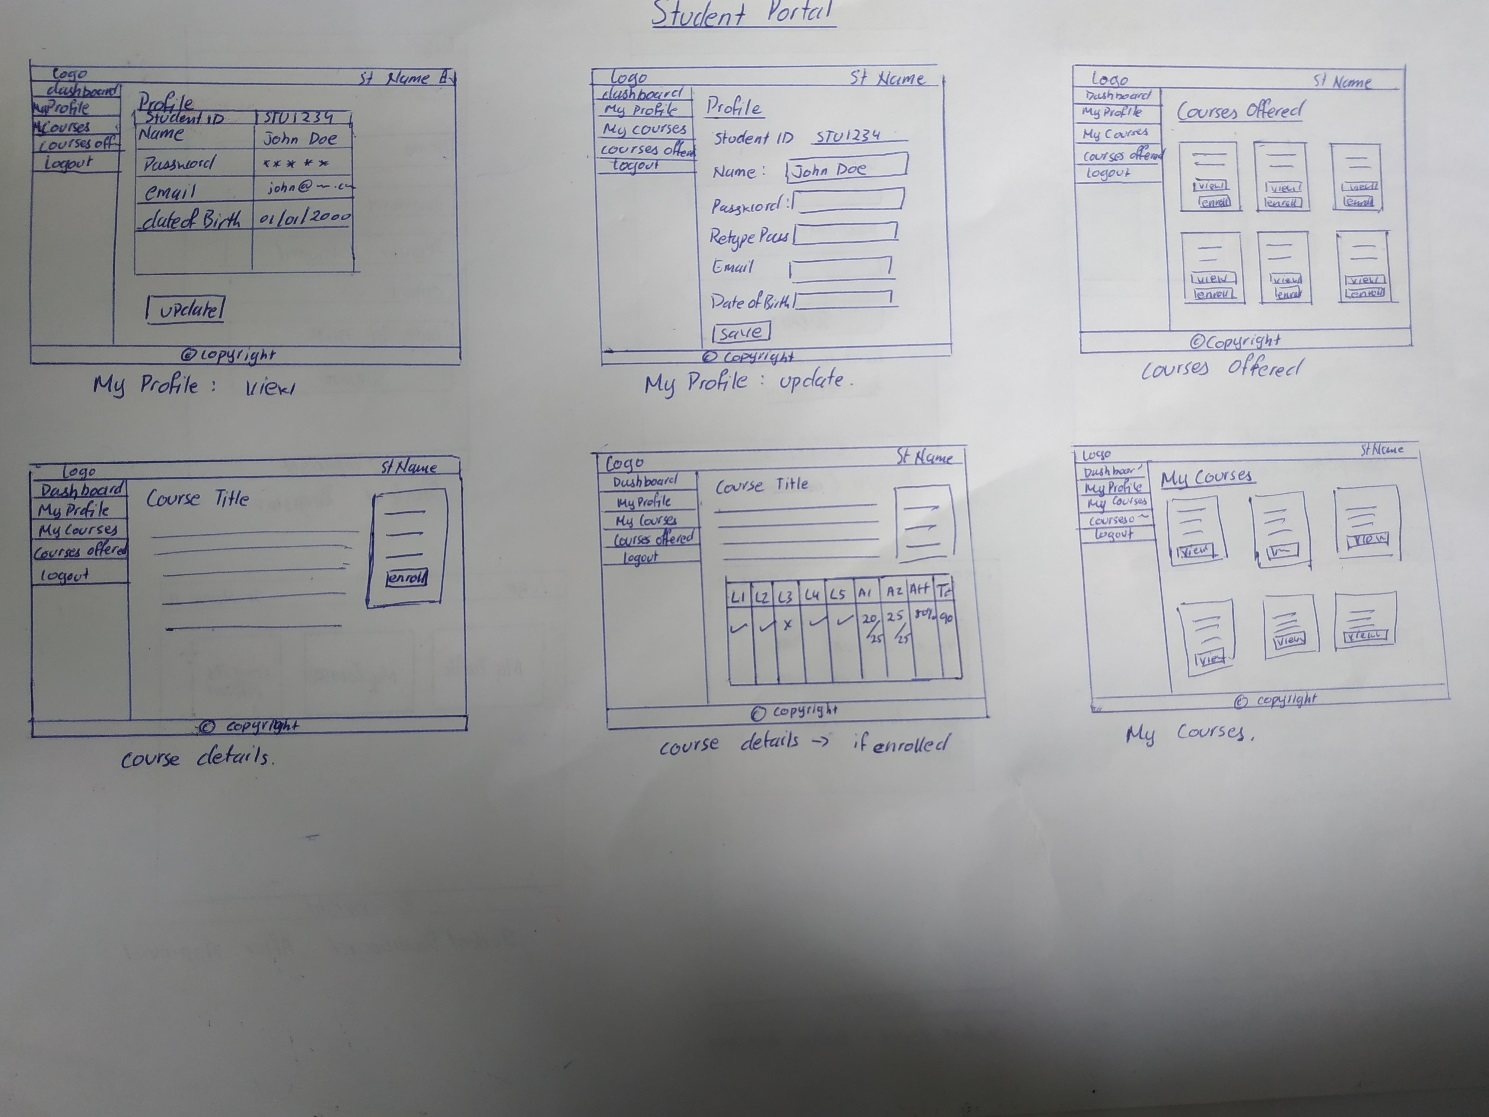 Student Portal
Logo
St Name
dashboard
My Profile
My Courses
courses off
Logout
Profile
Student ID STU1234
Name John Doe
Password * * * * *
email
date of Birth 01/01/2000
update
© copyright
My Profile : view
Logo St Name
dashboard
My Profile
My courses
courses offered
logout
Profile
Student ID STU1234
Name : John Doe
Password :
Retype Pass
Email
Date of Birth
save
© copyright
My Profile : update.
Logo St Name
Dashboard
My Profile
My Courses
courses offered
logout
Courses Offered
view view view
enroll enroll enroll
view view view
enroll enroll enroll
© Copyright
courses offered
Logo St Name
Dashboard
My Profile
My Courses
Courses offered
logout
Course Title
enroll
© copyright
course details.
Logo St Name
Dashboard
My Profile
My Courses
Courses offered
logout
Course Title
L1 L2 L3 L4 L5 A1 A2 Att Tt
✓ ✓ x ✓ ✓ 20/25 25/25 80% 90
© copyright
course details → if enrolled
Logo St Name
Dashboar
My Profile
My Courses
Courses o~
logout
My Courses
view view
view view view
© copyright
My Courses.